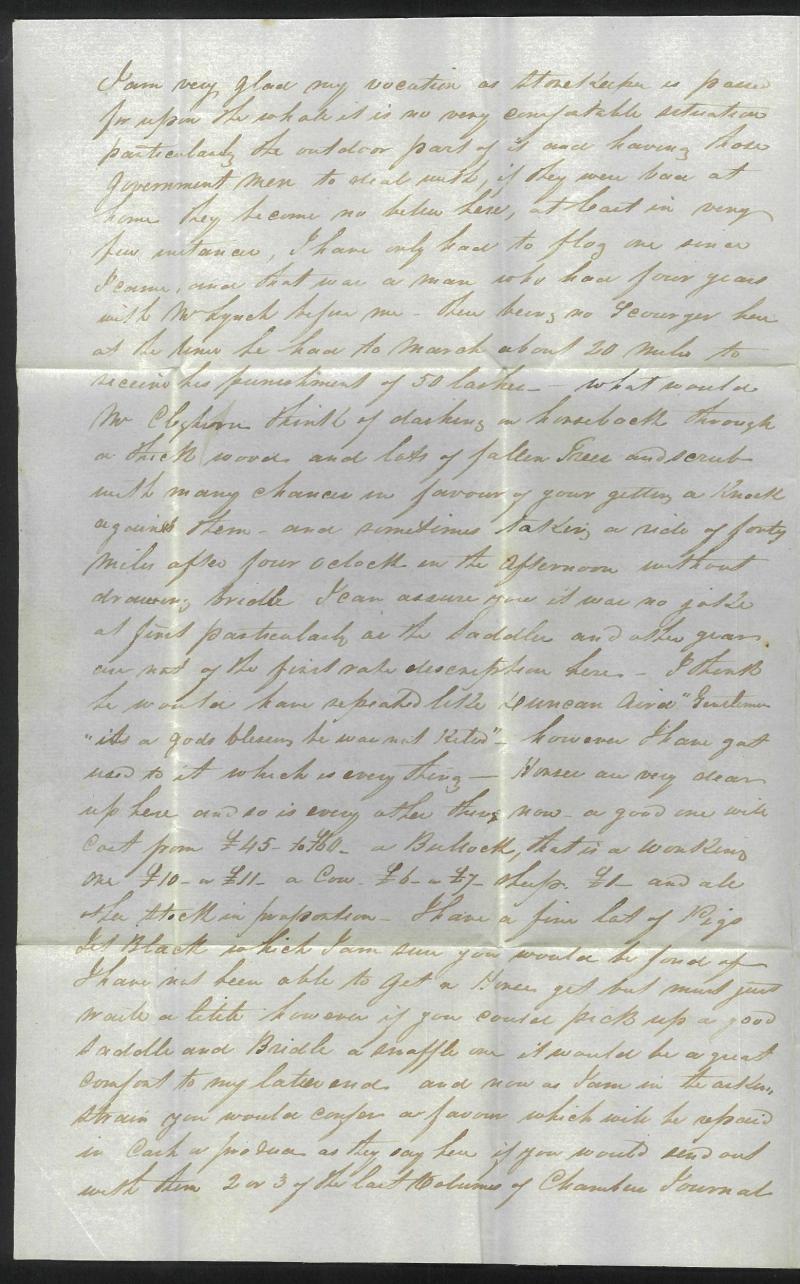 I am very glad my vocation as Storekeeper is passed
for upon the whole it is no very comfortable situation
particularly the outdoor part of it and having those
Government Men to deal with, if they were bad at
home they become no better here, at least in very
few instances, I have only had to flog one since
I came, and that was a man who had four years
with Mr Lynch before me - there being no Scourger here
at the time he had to March about 20 miles to
receive his punishment of 50 lashes - what would
Mr Cleghorn think of dashing on horseback through
a thick wood and lots of fallen Trees and scrub
with many chances in favour of your getting a Knock
against them - and sometimes taking a ride of forty
Miles after four oClock in the afternoon without
drawing bridle I can assure you it was no joke
at first particularly as the Saddles and other gear
are not of the first rate description here - I think
he would have repeated like Duncan Aird "Gentlemen
"its a gods blessing he was not Kiled" - however I have got
used to it which is every thing - Horses are very dear
up here and so is every other thing now - a good one will
Cost from £45 - to £60 - a Bullock, that is a working
one £10 - a £11 - a Cow £6 - a £7 - sheep £1 - and all
other stock in proportion - I have a fine lot of Pigs
Jet Black which I am sure you would be fond of
I have not been able to get a Horse yet but must just
waite a little however if you could pick up a good
Saddle and Bridle a snaffle one it would be a great
comfort to my latter end and now as I am in the asking
strain you would confer a favour which will be repaid
in Cash or produce as they say here if you would send out
with them 2 or 3 of the last Volumes of Chambers Journal